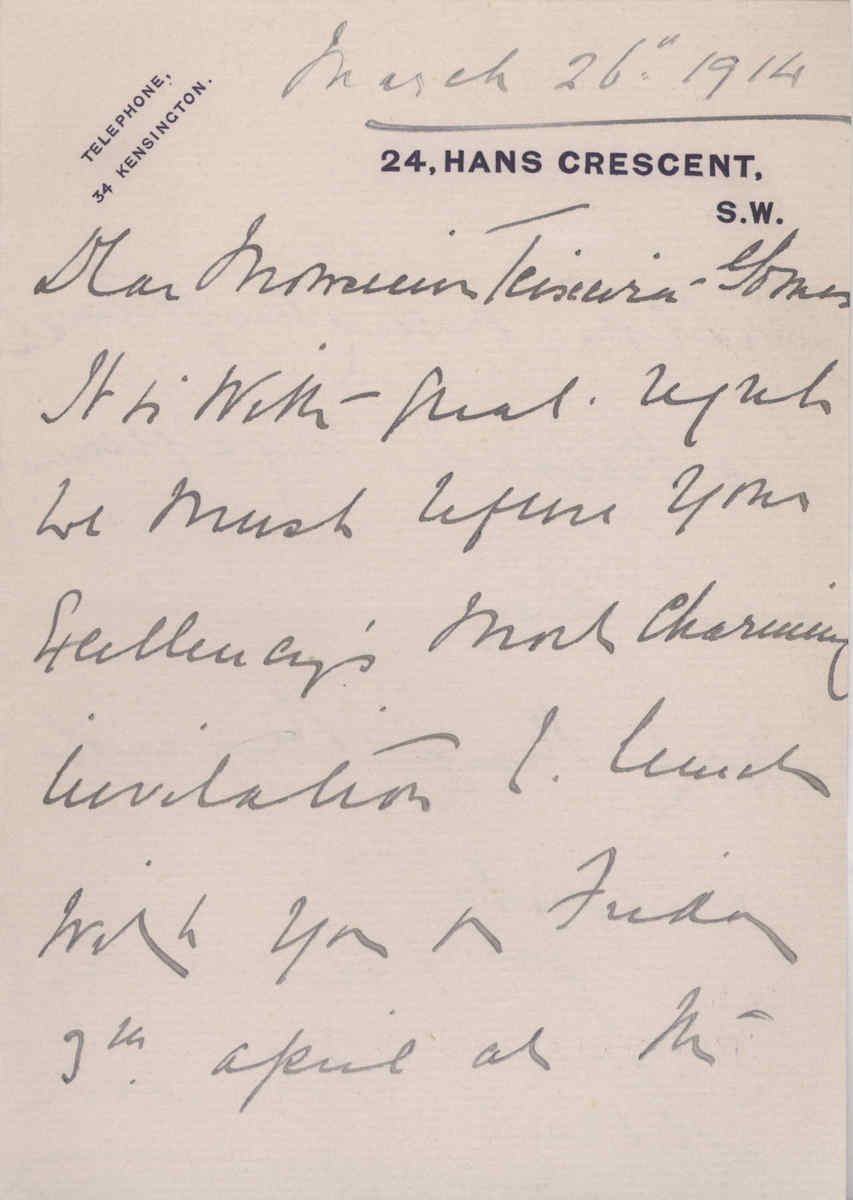 March 26th 1914
TELEPHONE,
34 KENSINGTON.
24, HANS CRESCENT,
S.W.
Dear Monsieur Teixeira-Gomes
It is With great regret
We Must refuse Your
Excellency's Most Charming
invitation to lunch
With You on Friday
3rd April at the